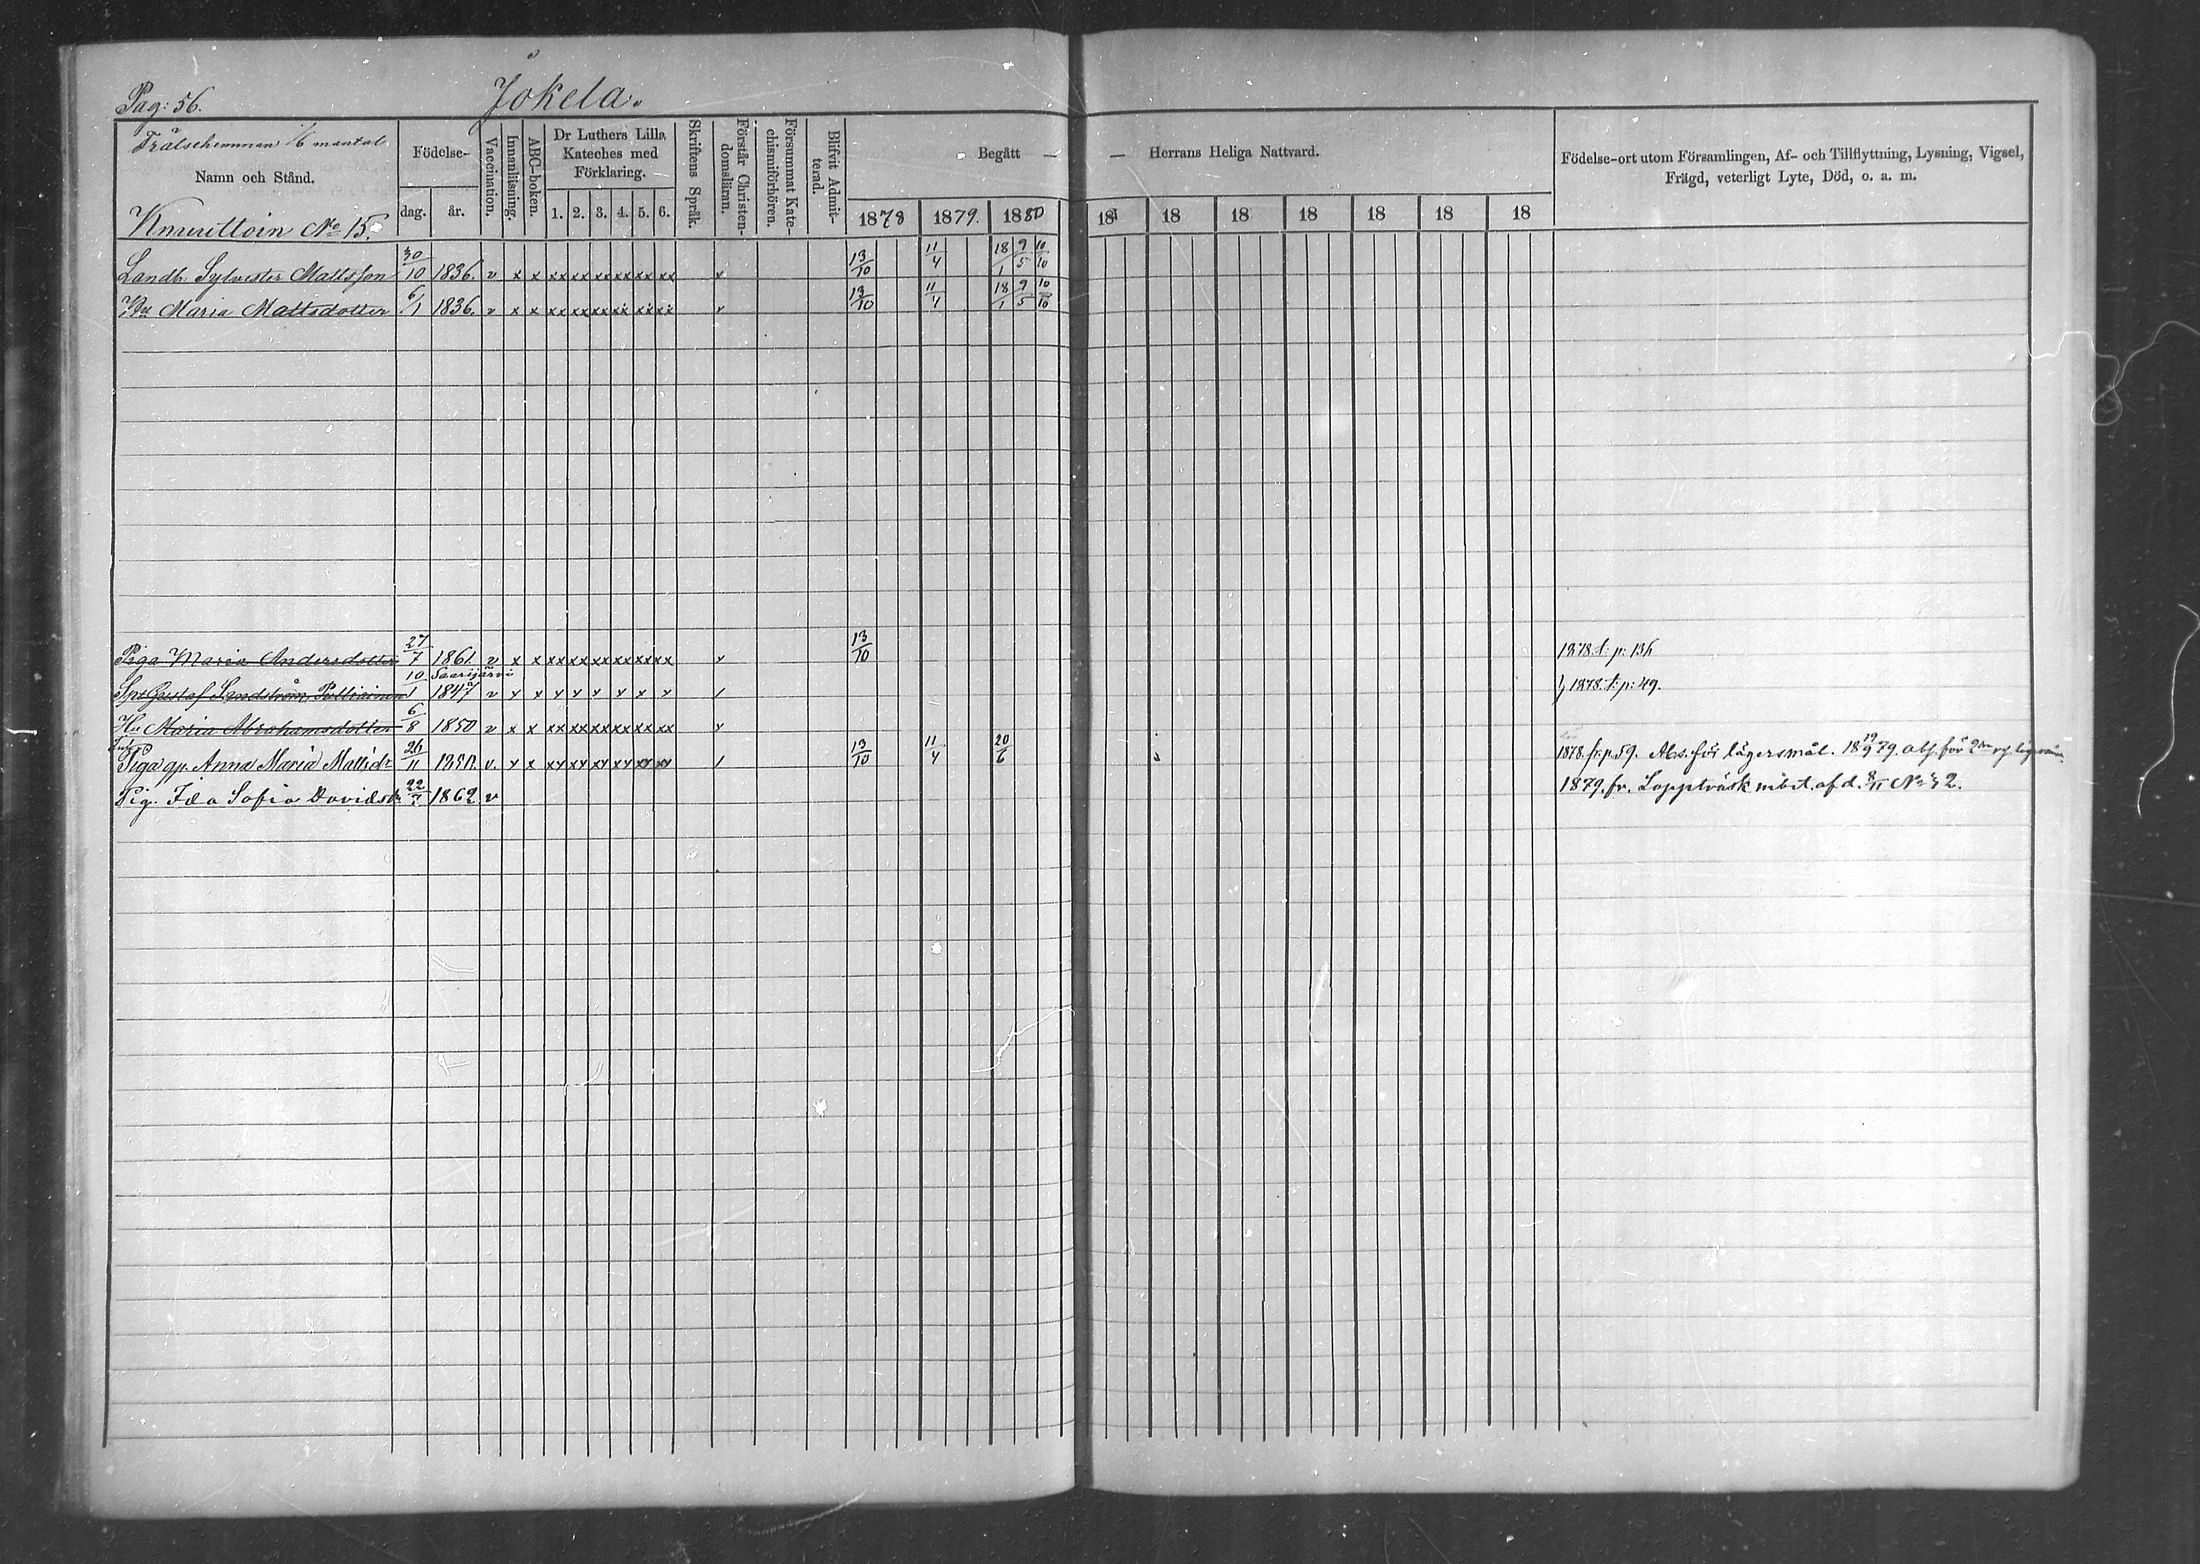 Pag: 56. Jokela.
Frälsehemman 1/6 mantal
Namn och Stånd. Födelse- dag. år. Vaccination. Innanläsning. ABC-boken. Dr Luthers Lilla Kateches med Förklaring. 1. 2. 3. 4. 5. 6. Skriftens Språk. Förstår Christendomsläran. Försummat Katechismiförhören. Blifvit Admitterad. Begått — — Herrans Heliga Nattvard. Födelse-ort utom Församlingen, Af- och Tillflyttning, Lysning, Vigsel, Frägd, veterligt Lyte, Död, o. a. m.
No 15. 1878 1879. 1880 18 18 18 18 18 18 18
Landb. Sylvester Mattsson 30/10 1836. v x x xx xx xx xx xx xx v 13/10 11/4 18/1 9/5 10/10
Maria Mattsdotter 6/1 1836. v x x xx xx xx xx xx xx v 13/10 11/4 18/1 9/5 10/10
Piga Maria Andersdotter 27/7 1861. v x x xx xx xx xx xx xx v 13/10 1878. t. p. 136
Saarijärvi
Gustaf Sandström 10/1 1847 v x x x x x x x x / 1878. t: p: 49.
Hu Maria Abrahamsdotter 6/8 1850 v x x xx xx xx xx xx xx v
Piga Anna Maria Mattsdr 26/11 1850. v. x x xx xx xx xx xx xx / 13/10 11/4 20/6 1878. fr. p. 59. Abs. för lägersmål. 18 19/9 79.
Pig. Ida Sofia Davidsdr 22/7 1862. v 1879. fr. Lappträsk m. bet. af d. 8/11 No 32.